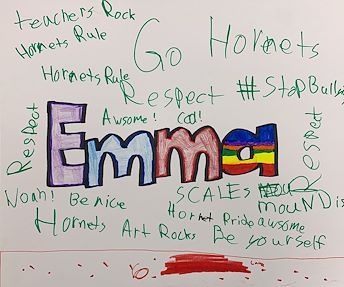 teachers Rock
Hornets Rule
Go Hornets
Hornets Rule
Respect
#StopBull
Awsome! Cool!
Respect
Emma
Respect
Noah! Be nice
SCALES
mouNDis
Hornet Pride awsome
Hornets Art Rocks Be yourself